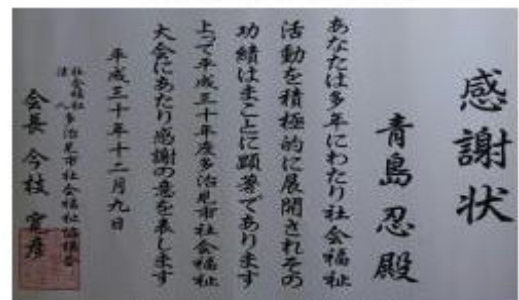 感謝状
青島 忍 殿
あなたは多年にわたり社会福祉
活動を積極的に展開されその
功績はまことに顕著であります
よって平成三十年度多治見市社会福祉
大会にあたり感謝の意を表します
平成三十年十二月九日
社会福祉法人 多治見市社会福祉協議会
会長 今枝 寛彦